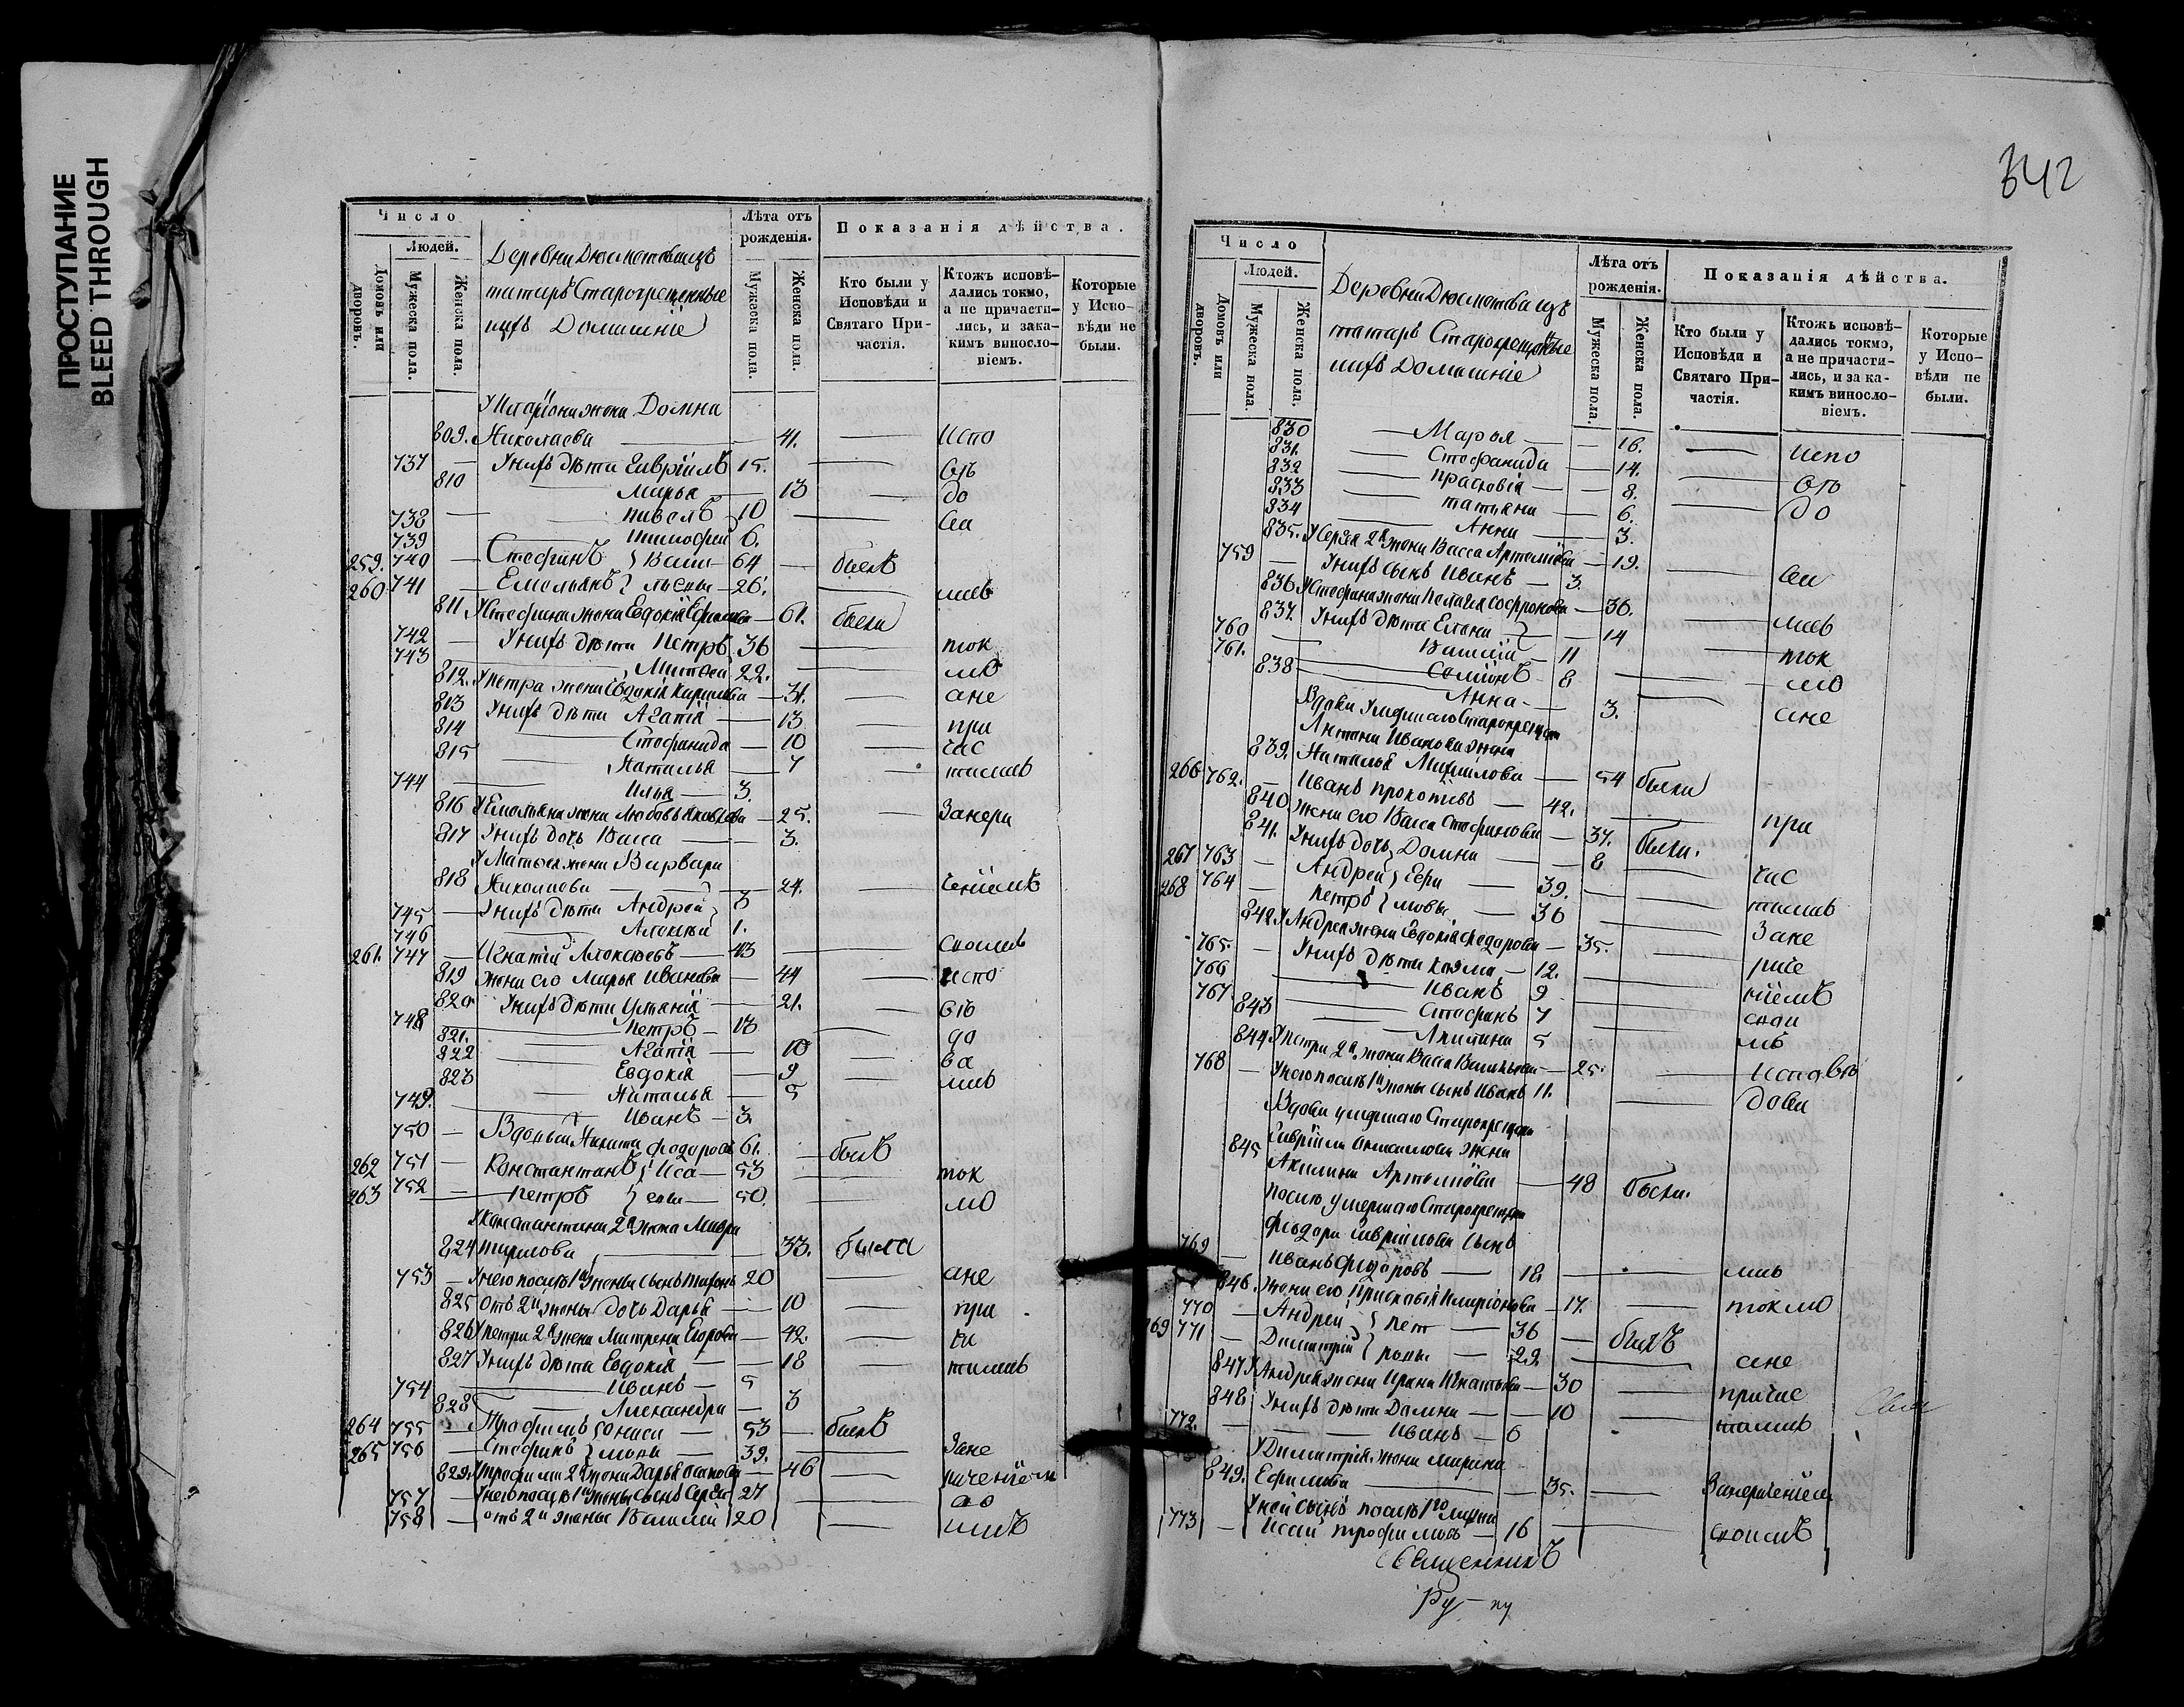 ПРОСТУПАНИЕ
BLEED THROUGH
342
Число
Людей.
Домовъ или дворовъ.
Мужеска пола.
Женска пола.
Деревни Дюсметева изъ
татаръ Старокрещенные
ихъ Домашніе
Лѣта отъ рожденія.
Мужеска пола.
Женска пола.
Показанія дѣйства.
Кто были у Исповѣди и Святаго Причастія.
Ктожъ исповѣдались токмо, а не причастились, и за какимъ винословіемъ.
Которые у Исповѣди не были.
У Иларіона жена Домна
809. Николаева 41. испо
737 У нихъ дѣти Гавріилъ 15. вѣ
810 Марья 13 до
738 Павелъ 10 ва
739 Тимофей 6.
259. 740 Стефанъ Васи 64 былъ
260 741 Емельянъ льевы 26. лись
811 У Стефана жена Евдокія Ефимова 61. была
742 У нихъ дѣти Петръ 36 ток
743 Матвей 22. мо
812. У Петра жена Евдокія Кирилова 31. а не
813 У нихъ дѣти Агафія 13 при
814 Стефанида 10 час
815 Наталья 7 тились
744 Илья 3.
816 У Емельяна жена Любовь Яковлева 25. За нера
817 У нихъ дочь Васса 3.
У Матвея жена Варвара
818 Николаева 24. ченіемъ
745 У нихъ дѣти Андрей 3
746 Алексѣй 1.
261. 747 Игнатій Алексѣевъ 43 скоимъ
819 жена его Марья Иванова 44 испо
820 У нихъ дѣти 21. вѣ
748 Петръ 13
821. Агафія 10 до
822 Евдокія 9 ва
823 Наталья 5 лись
749. Иванъ 3.
750 Вдовый Никита Федоровъ 61. былъ
262 751 Константинъ Иса 53 ток
263 752 Петръ евы 50. мо
У Константина 2я жена Мавра
824 Кирилова 33. была
753 У него после 1й жены сынъ Тифонъ 20 а не
825 отъ 2й жены дочь Дарья 10 при
826 У Петра 2я жена Матрена Егорова 42. ча
827 У нихъ дѣти Евдокія 18 тились
754 Иванъ 5
828 Александра 3
264 755 Трофимъ 53 былъ
265 756 Стефанъ 39. За не
829. У Трофима 2я жена Дарья Осипова 46 раченіем
757 У него после 1й жены сынъ Сергей 27 ско
758 отъ 2й жены Василій 20 имъ
Число
Людей.
Домовъ или дворовъ.
Мужеска пола.
Женска пола.
Деревни Дюсметева изъ
татаръ Старокрещеные
ихъ Домашніе
Лѣта отъ рожденія.
Мужеска пола.
Женска пола.
Показанія дѣйства.
Кто были у Исповѣди и Святаго Причастія.
Ктожъ исповѣдались токмо, а не причастились, и за какимъ винословіемъ.
Которые у Исповѣди не были.
830 Марья 16. испо
831. Стефанида 14.
832 Прасковія 8. вѣ
833 Татьяна 6. до
834 Анна 3.
835. У Сергея 2я жена Васса Артемьева 19.
759 У нихъ сынъ Иванъ 3. ва
836 У Стефана жена Пелагея Софронова 36.
837. У нихъ дѣти Елена 14 лись
760 Василій 11 ток
761. Семіонъ 8 мо
838 Анна 3. а не
Вдова умершаго Старокрещена
Антона Иванова жена
839. Наталья Михайлова 54 была
266 762. Иванъ Прокопьевъ 42. при
840 жена его Васса Стефанова 37. была.
841. У нихъ дочь Домна 8 час
267 763 Андрей Ефи 39. тились
268 764 Петръ мовы 36 За не
842. У Андрея жена Евдокія Федорова 35.
765. У нихъ дѣти Козма 12. раче
766 Иванъ 9 ніемъ
767 Стефанъ 7 скои
843 Акилина 5 мъ
844 У Петра 2я жена Васса Васильева 25. исповѣ
768 У него после 1й жены сынъ Иванъ 11. дова
Вдова умершаго Старокрещена
845 Гавріила жена
Акилина Артемьева 48 была.
После умершаго Старокрещена
Федора Гаврилова сынъ
769 Иванъ Федоровъ 18 лись
846. жена его Прасковія Иларіонова 17. токмо
770 Андрей Пет 36 былъ
269 771 Димитрій ровы 29. а не
847 У Андрея жена Ирина Игнатьева 30 причас
848 У нихъ дѣти Домна 10 тились
772. Иванъ 6
У Димитрія жена Марина
849. Ефимова 35. За нераченіем
У ней сынъ после 1го мужа
773 Исай Трофимовъ 16 скоимъ
Священникъ